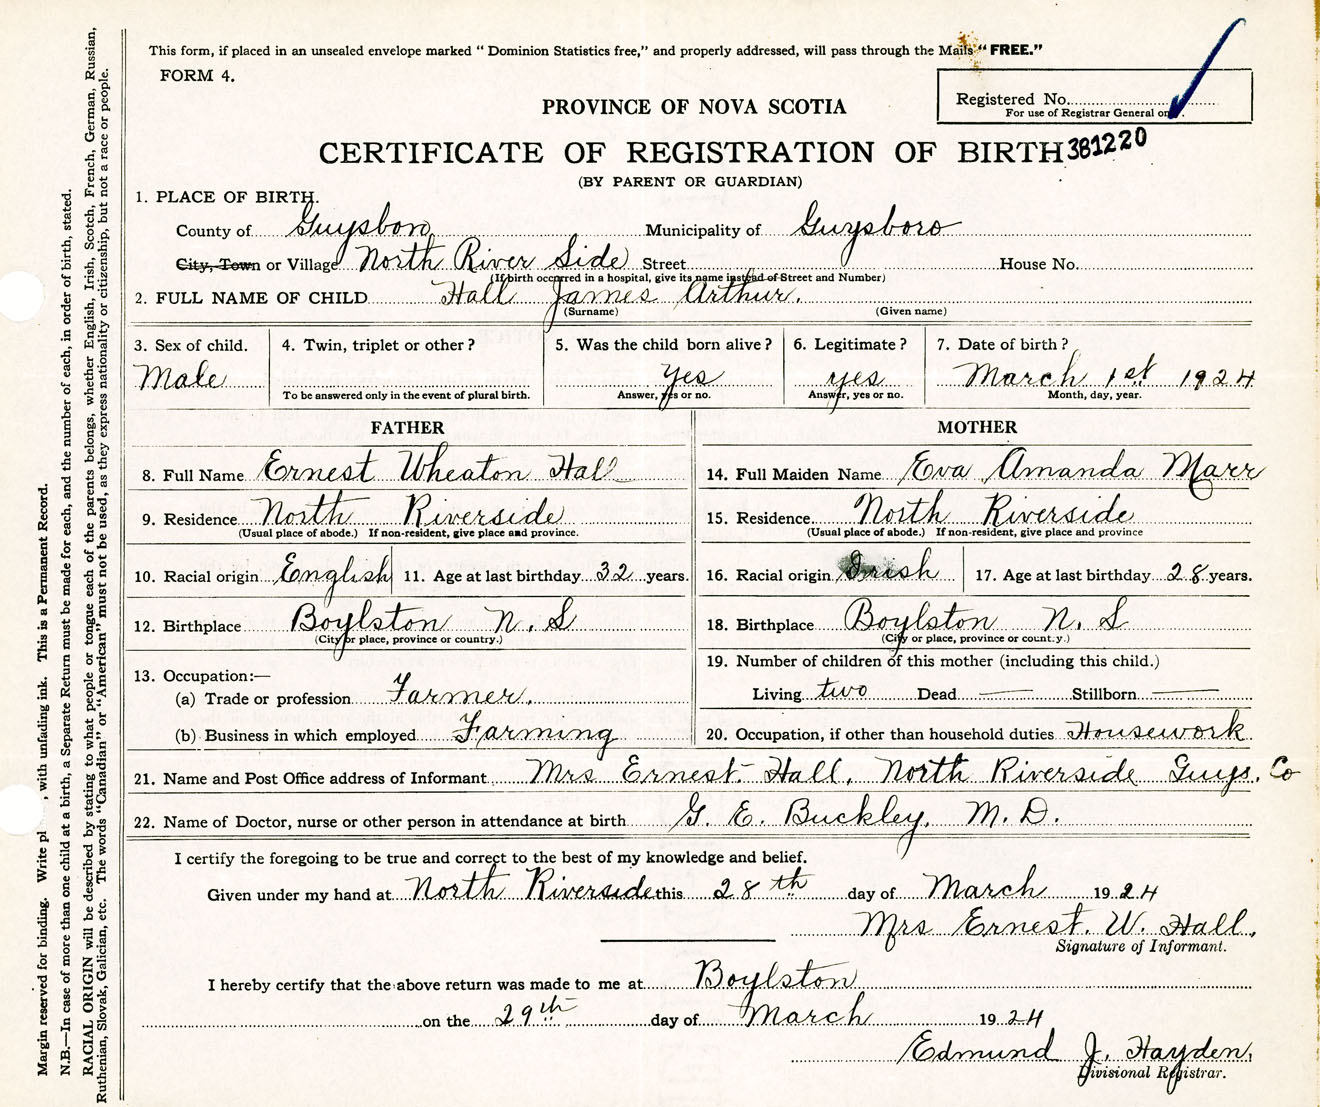 This form, if placed in an unsealed envelope marked "Dominion Statistics free," and properly addressed, will pass through the Mails "FREE."
FORM 4.
Registered No.
For use of Registrar General on
PROVINCE OF NOVA SCOTIA
CERTIFICATE OF REGISTRATION OF BIRTH 381220
(BY PARENT OR GUARDIAN)
1. PLACE OF BIRTH.
County of Guysboro Municipality of Guysboro
City, Town or Village North River Side Street House No.
(If birth occurred in a hospital, give its name instead of Street and Number)
2. FULL NAME OF CHILD Hall James Arthur.
(Surname) (Given name)
3. Sex of child. 4. Twin, triplet or other? 5. Was the child born alive? 6. Legitimate? 7. Date of birth?
Male yes yes March 1st 1924
To be answered only in the event of plural birth. Answer, yes or no. Answer, yes or no. Month, day, year.
FATHER MOTHER
8. Full Name Ernest Wheaton Hall 14. Full Maiden Name Eva Amanda Marr
9. Residence North Riverside 15. Residence North Riverside
(Usual place of abode.) If non-resident, give place and province. (Usual place of abode.) If non-resident, give place and province
10. Racial origin English 11. Age at last birthday 32 years. 16. Racial origin Irish 17. Age at last birthday 28 years.
12. Birthplace Boylston N. S 18. Birthplace Boylston N. S
(City or place, province or country.) (City or place, province or country.)
13. Occupation:— 19. Number of children of this mother (including this child.)
(a) Trade or profession Farmer. Living two Dead — Stillborn —
(b) Business in which employed Farming 20. Occupation, if other than household duties Housework
21. Name and Post Office address of Informant Mrs Ernest Hall, North Riverside Guys. Co
22. Name of Doctor, nurse or other person in attendance at birth G. E. Buckley, M. D.
I certify the foregoing to be true and correct to the best of my knowledge and belief.
Given under my hand at North Riverside this 28th day of March 1924
Mrs Ernest. W. Hall.
Signature of Informant.
I hereby certify that the above return was made to me at Boylston
on the 29th day of March 1924
Edmund J. Hayden,
Divisional Registrar.
Margin reserved for binding. Write pl , with unfading ink. This is a Permanent Record.
N.B.—In case of more than one child at a birth, a Separate Return must be made for each, and the number of each, in order of birth, stated.
RACIAL ORIGIN will be described by stating to what people or tongue each of the parents belongs, whether English, Irish, Scotch, French, German, Russian,
Ruthenian, Slovak, Galician, etc. The words "Canadian" or "American" must not be used, as they express nationality or citizenship, but not a race or people.